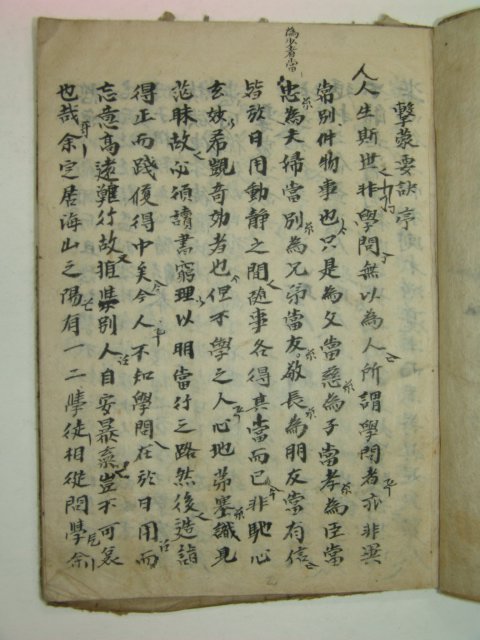 擊蒙要訣序
人人生斯世非學問無以為人所謂學問者亦非異
常別件物事也只是為父當慈為子當孝為臣當
為少者當
忠為夫婦當別為兄弟當友敬長為朋友當有信
皆於日用動靜之間随事各得其當而已非馳心
玄妙希覬奇効者也但不學之人心地茅塞識見
茫昧故必須讀書窮理以明當行之路然後造詣
得正而踐履得中矣今人不知學問在於日用而
忘意高遠難行故推與別人自安暴棄豈不可哀
也哉余定居海山之陽有一二學徒相從問學余